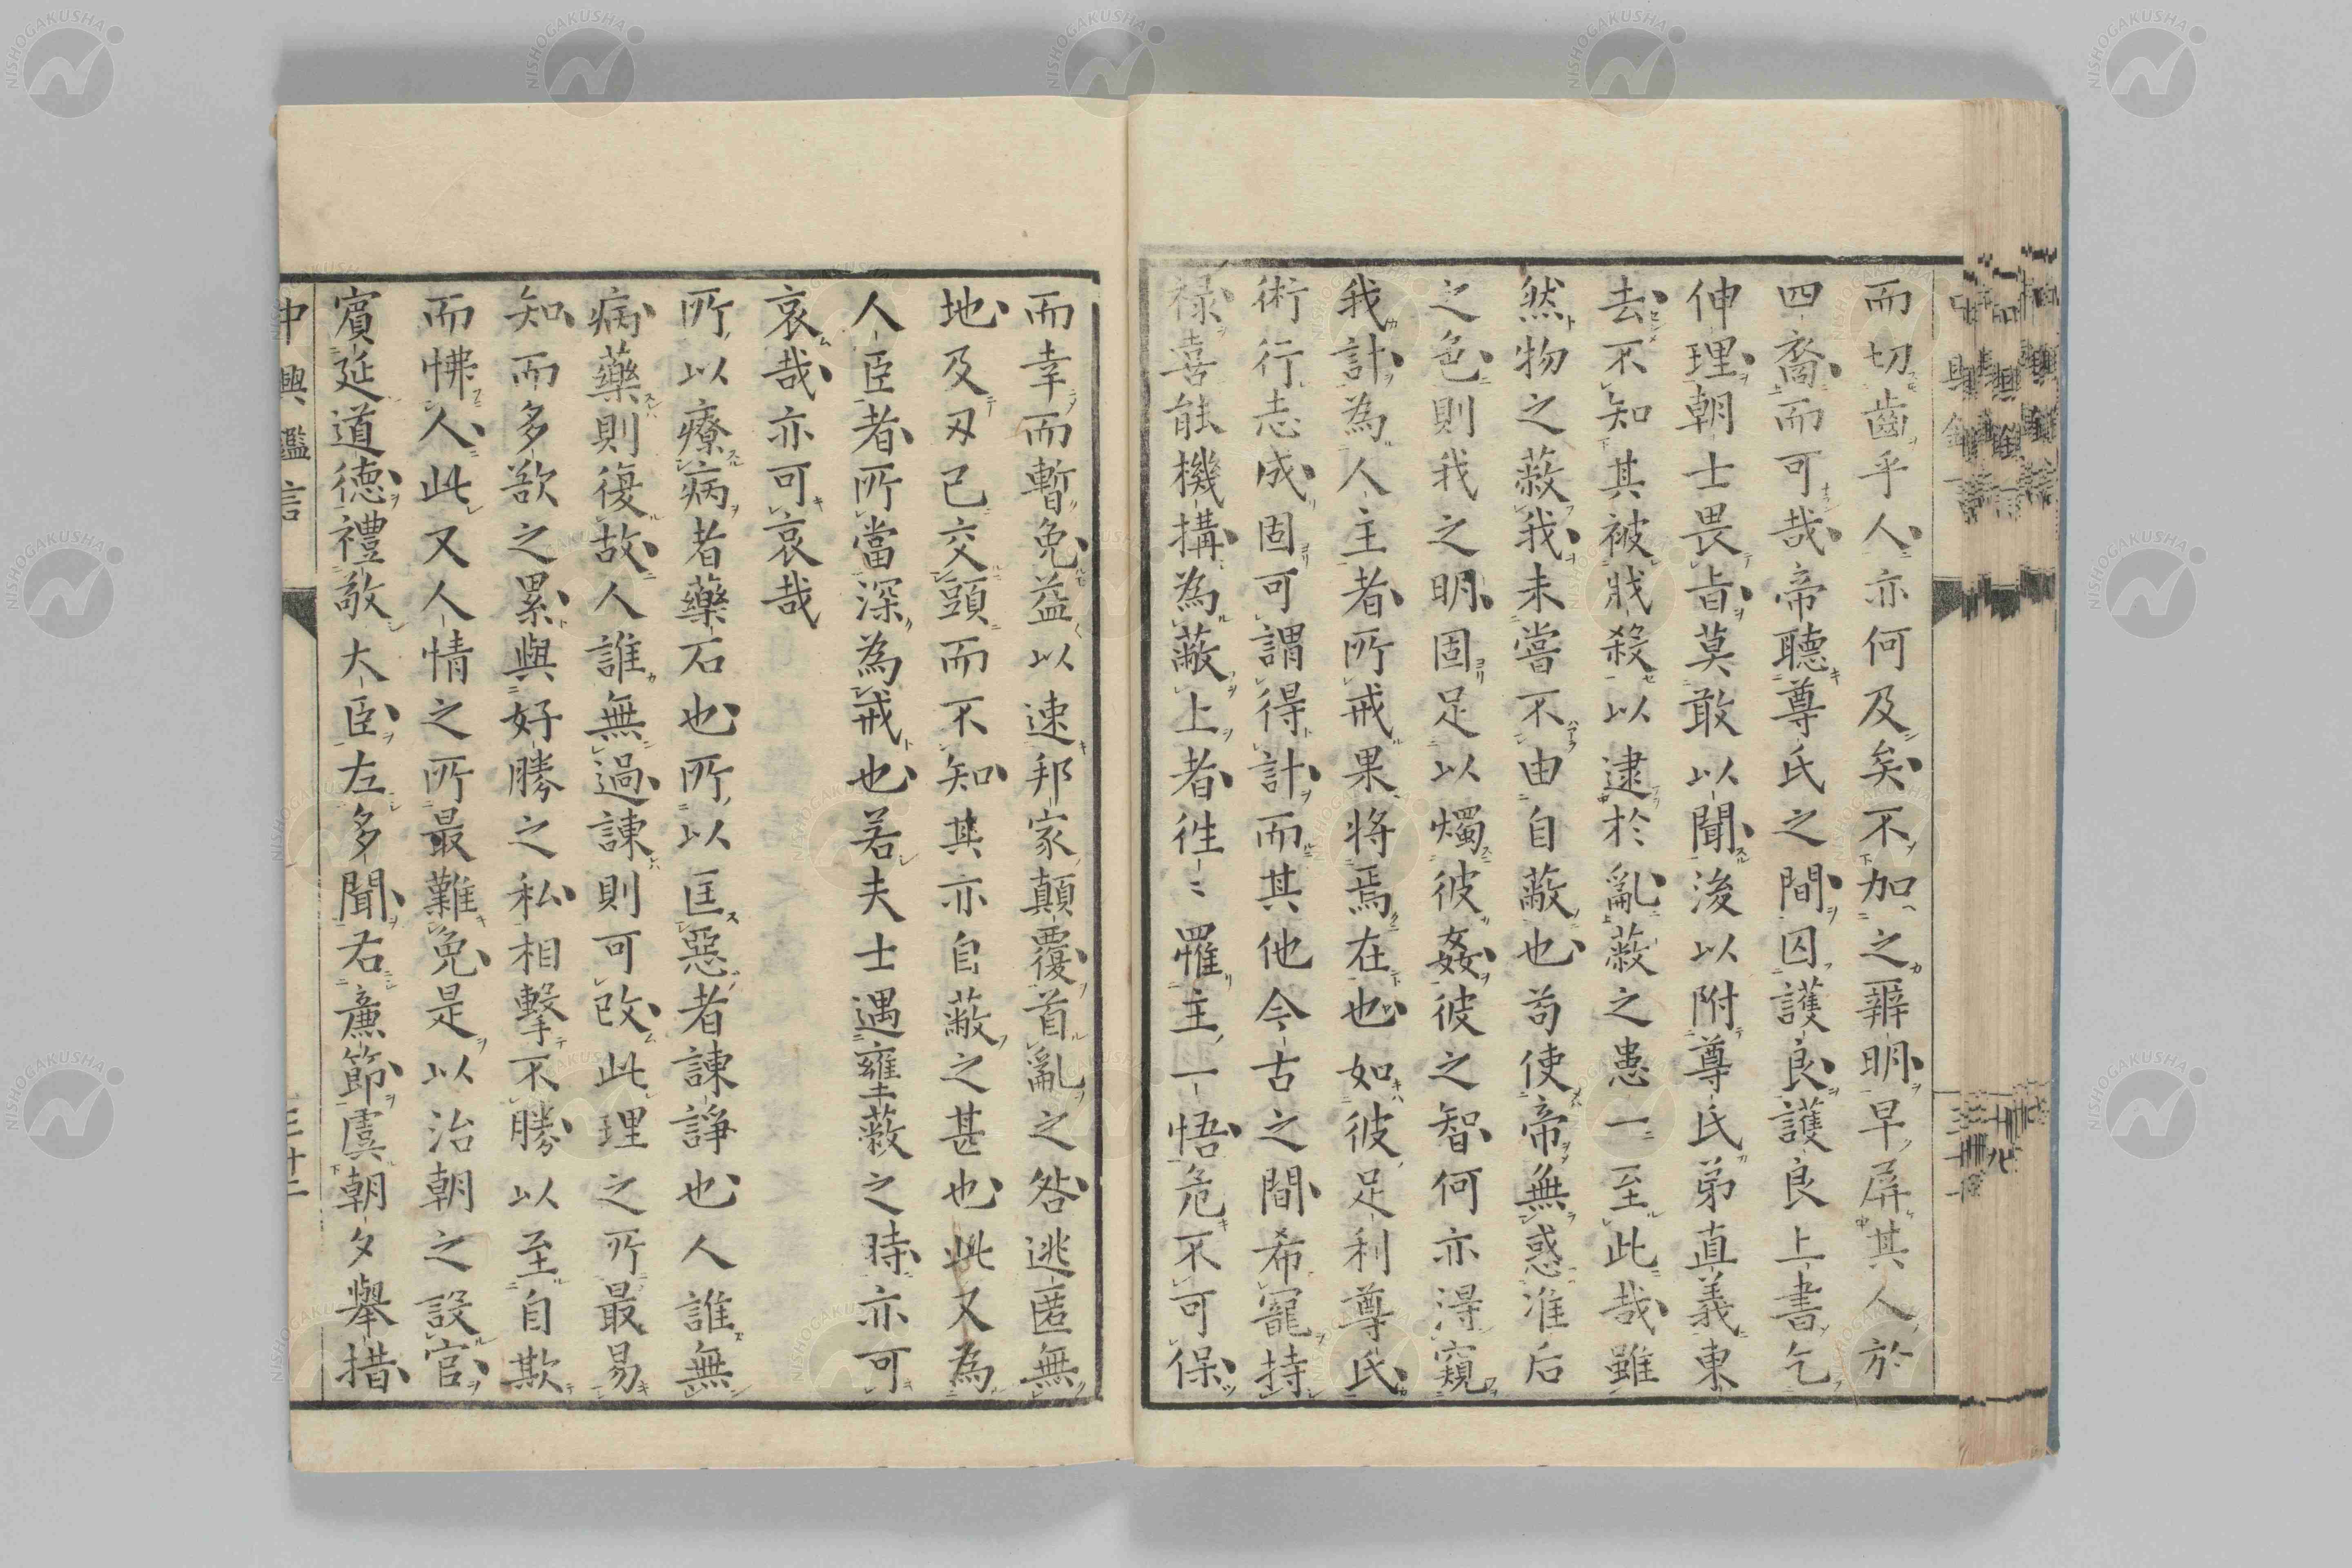 而切齒乎人亦何及矣不加之辨明早屏其人於
四裔而可哉帝聽尊氏之間囚護良護良上書乞
伸理朝士畏旨莫敢以聞後以附尊氏弟直義東
去不知其被戕殺以逮於亂蔽之患一至此哉雖
然物之蔽我未嘗不由自蔽也苟使帝無惑准后
之色則我之明固足以燭彼姦彼之智何亦得窺
我計為人主者所戒果將焉在也如彼足利尊氏
術行志成固可謂得計而其他今古之間希寵持
祿喜能機搆為蔽上者徃〻罹主一悟危不可保
而幸而暫免益以速邦家顛覆首亂之咎逃匿無
地及刃已交頸而不知其亦自蔽之甚也此又為
人臣者所當深為戒也若夫士遇壅蔽之時亦可
哀哉亦可哀哉
所以療病者藥石也所以匡惡者諫諍也人誰無
病藥則復故人誰無過諫則可改此理之所最易
知而多欲之累與好勝之私相擊不勝以至自欺
而怫人此又人情之所最難免是以治朝之設官
賓延道德禮敬大臣左多聞右廉節虞朝夕舉措
中興鑑言
三十二